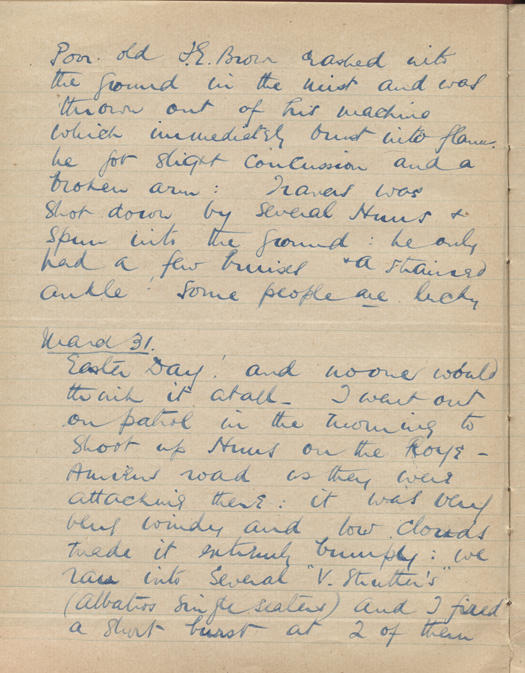 Poor old F.E. Brown crashed into
the ground in the mist and was
thrown out of his machine
which immediately burst into flames.
he got slight concussion and a
broken arm: Travers was
shot down by several Huns &
spun into the ground: he only
had a few bruises & a strained
ankle! Some people are lucky
March 31.
Easter Day! and no one would
think it at all – I went out
on patrol in the morning to
shoot up Huns on the Roye –
Amiens road as they were
attacking there: it was very
very windy and low clouds
made it extremely bumpy: we
ran into several "V. Strutter's"
(Albatros single seaters) and I fired
a short burst at 2 of them